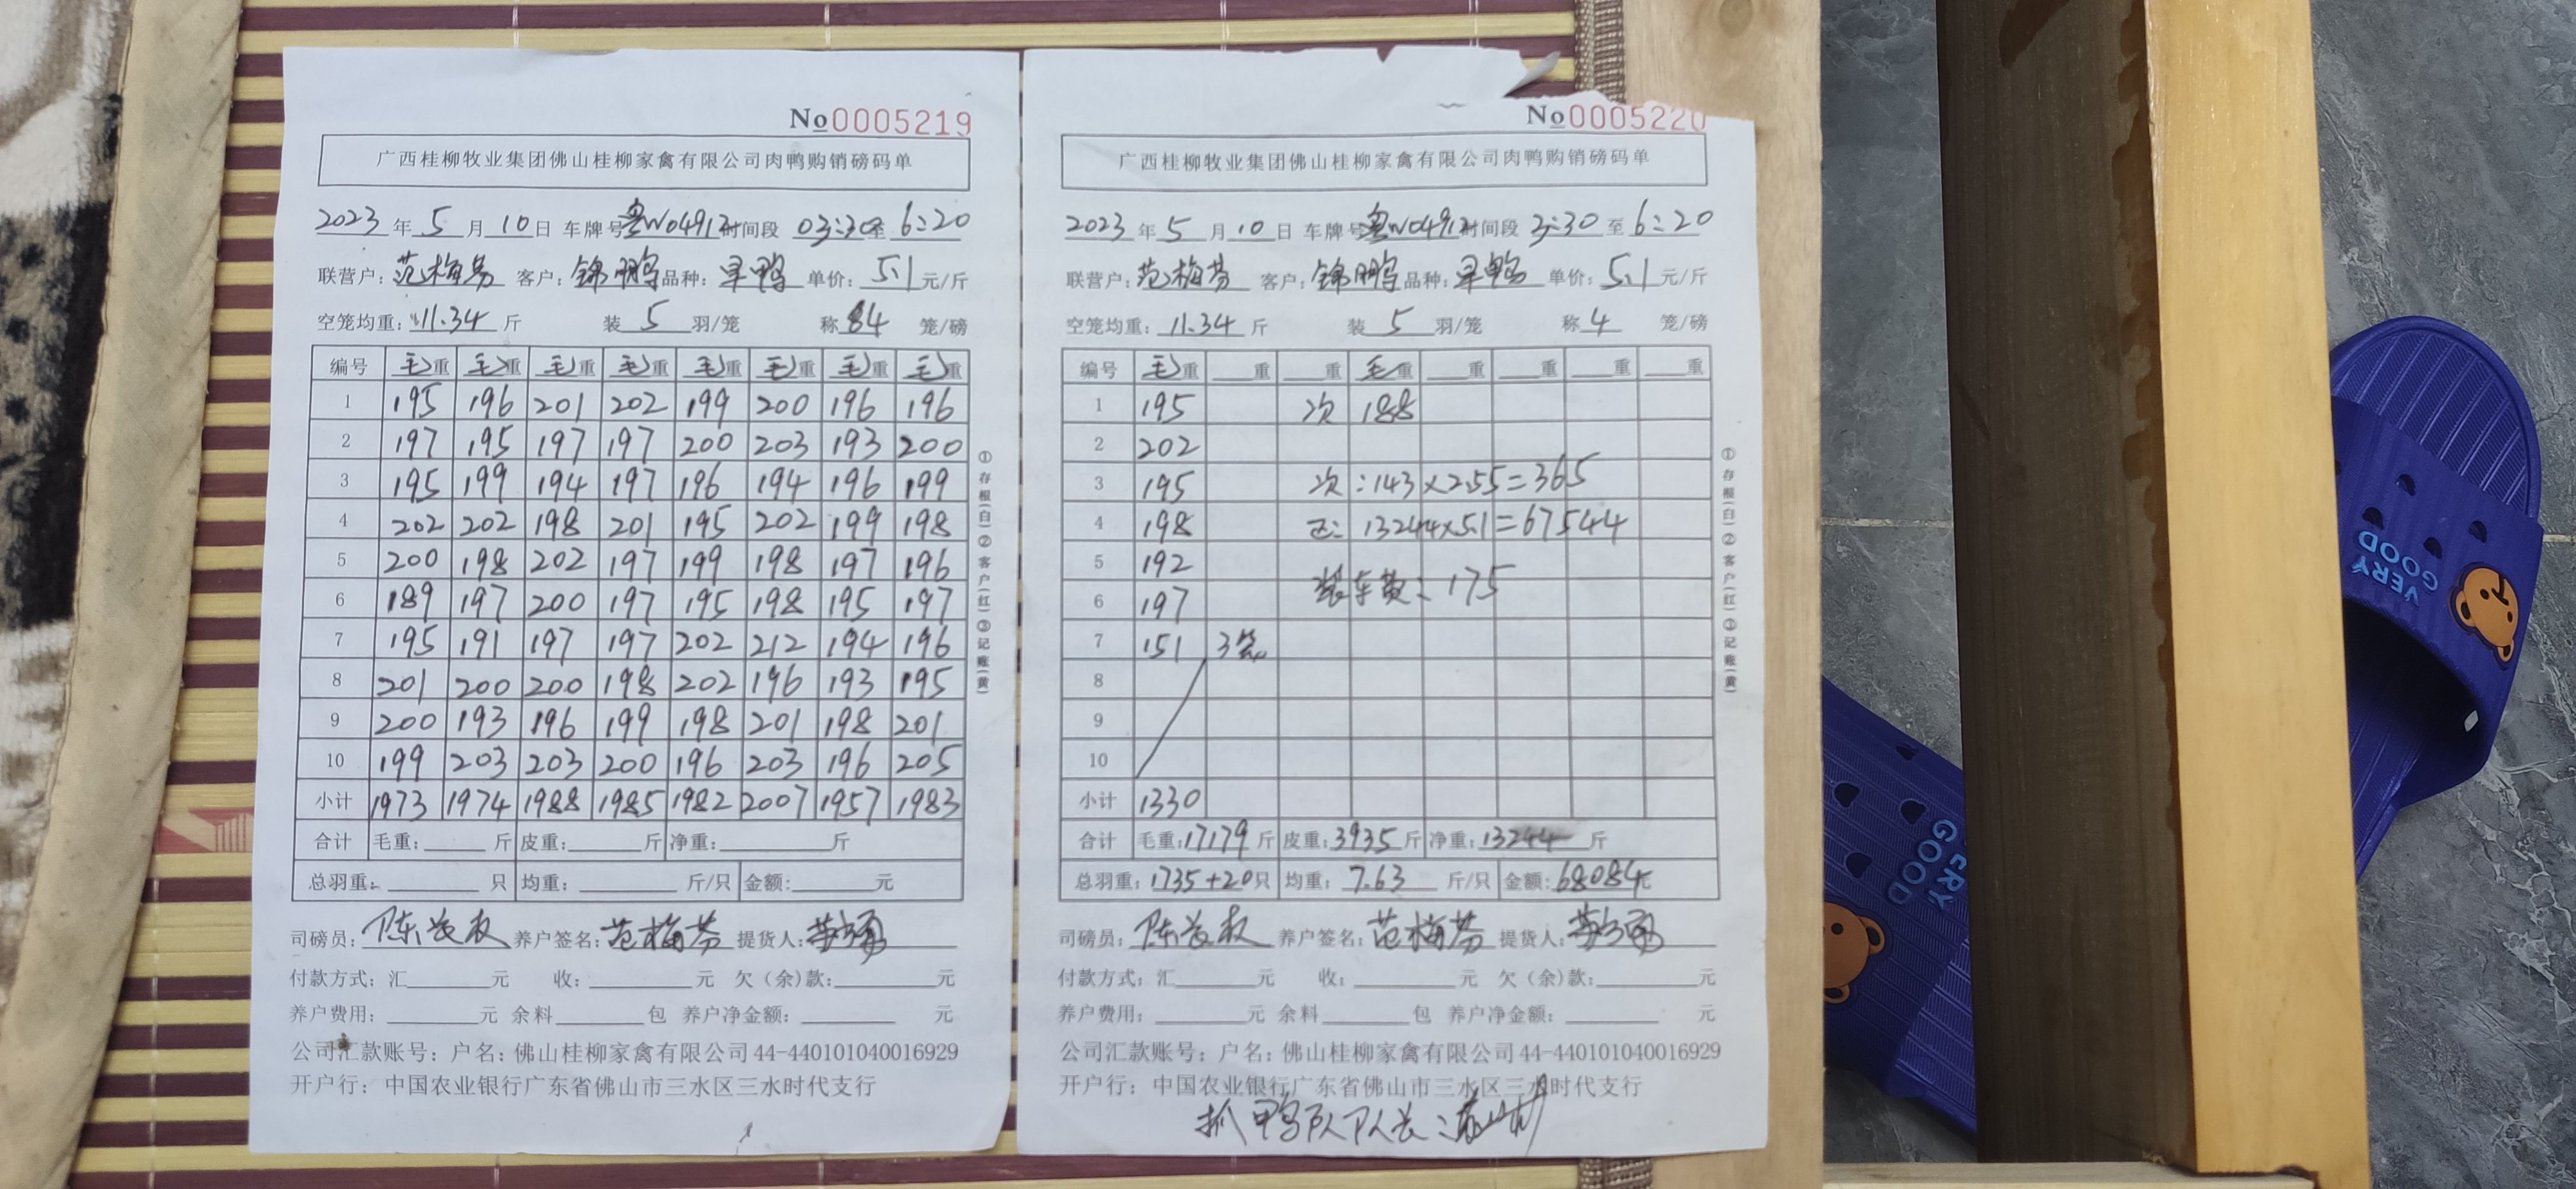 No0005219
广西桂柳牧业集团佛山桂柳家禽有限公司肉鸭购销磅码单
2023年5月10日 车牌号粤W04912时间段 03:30至6:20
联营户:范梅芬 客户:锦鹏 品种:旱鸭 单价:5.1元/斤
空笼均重:11.34斤 装5羽/笼 称84笼/磅
编号 毛重 毛重 毛重 毛重 毛重 毛重 毛重 毛重
1 195 196 201 202 199 200 196 196
2 197 195 197 197 200 203 193 200
3 195 199 194 197 196 194 196 199
4 202 202 198 201 195 202 199 198
5 200 198 202 197 199 198 197 196
6 189 197 200 197 195 198 195 197
7 195 191 197 197 202 212 194 196
8 201 200 200 198 202 196 193 195
9 200 193 196 199 198 201 198 201
10 199 203 203 200 196 203 196 205
小计 1973 1974 1988 1985 1982 2007 1957 1983
合计 毛重:斤 皮重:斤 净重:斤
总羽重:只 均重:斤/只 金额:元
司磅员: 养户签名:范梅芬 提货人:
付款方式:汇元 收:元 欠(余)款:元
养户费用:元 余料包 养户净金额:元
公司汇款账号:户名:佛山桂柳家禽有限公司44-440101040016929
开户行:中国农业银行广东省佛山市三水区三水时代支行
①存根(白)②客户(红)③记账(黄)
No0005220
广西桂柳牧业集团佛山桂柳家禽有限公司肉鸭购销磅码单
2023年5月10日 车牌号粤W04912时间段 3:30至6:20
联营户:范梅芬 客户:锦鹏 品种:旱鸭 单价:5.1元/斤
空笼均重:11.34斤 装5羽/笼 称4笼/磅
编号 毛重 重 重 毛重 重 重 重 重
1 195 次 188
2 202
3 195 次:143×2.55=365
4 198 正:13244×5.1=67544
5 192
6 197 装车费:175
7 151 3笼
8
9
10
小计 1330
合计 毛重:17179斤 皮重:3935斤 净重:13244斤
总羽重:1735+20只 均重:7.63斤/只 金额:68084元
司磅员: 养户签名:范梅芬 提货人:
付款方式:汇元 收:元 欠(余)款:元
养户费用:元 余料包 养户净金额:元
公司汇款账号:户名:佛山桂柳家禽有限公司44-440101040016929
开户行:中国农业银行广东省佛山市三水区三水时代支行
抓鸭队队长:
①存根(白)②客户(红)③记账(黄)
VERY
GOOD
VERY
GOOD